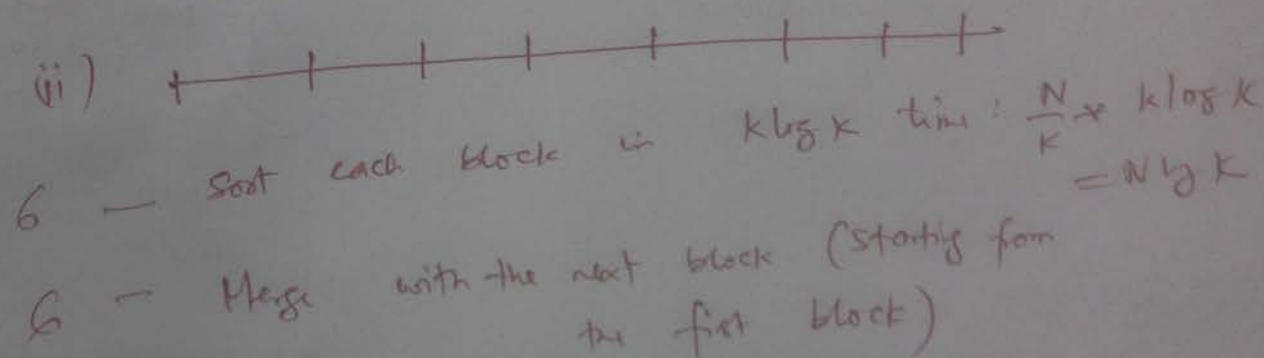 ii)
6 — Sort each block in k log k time : N/K * k log K
= N lg K
6 — Merge with the next block (starting from
the first block)